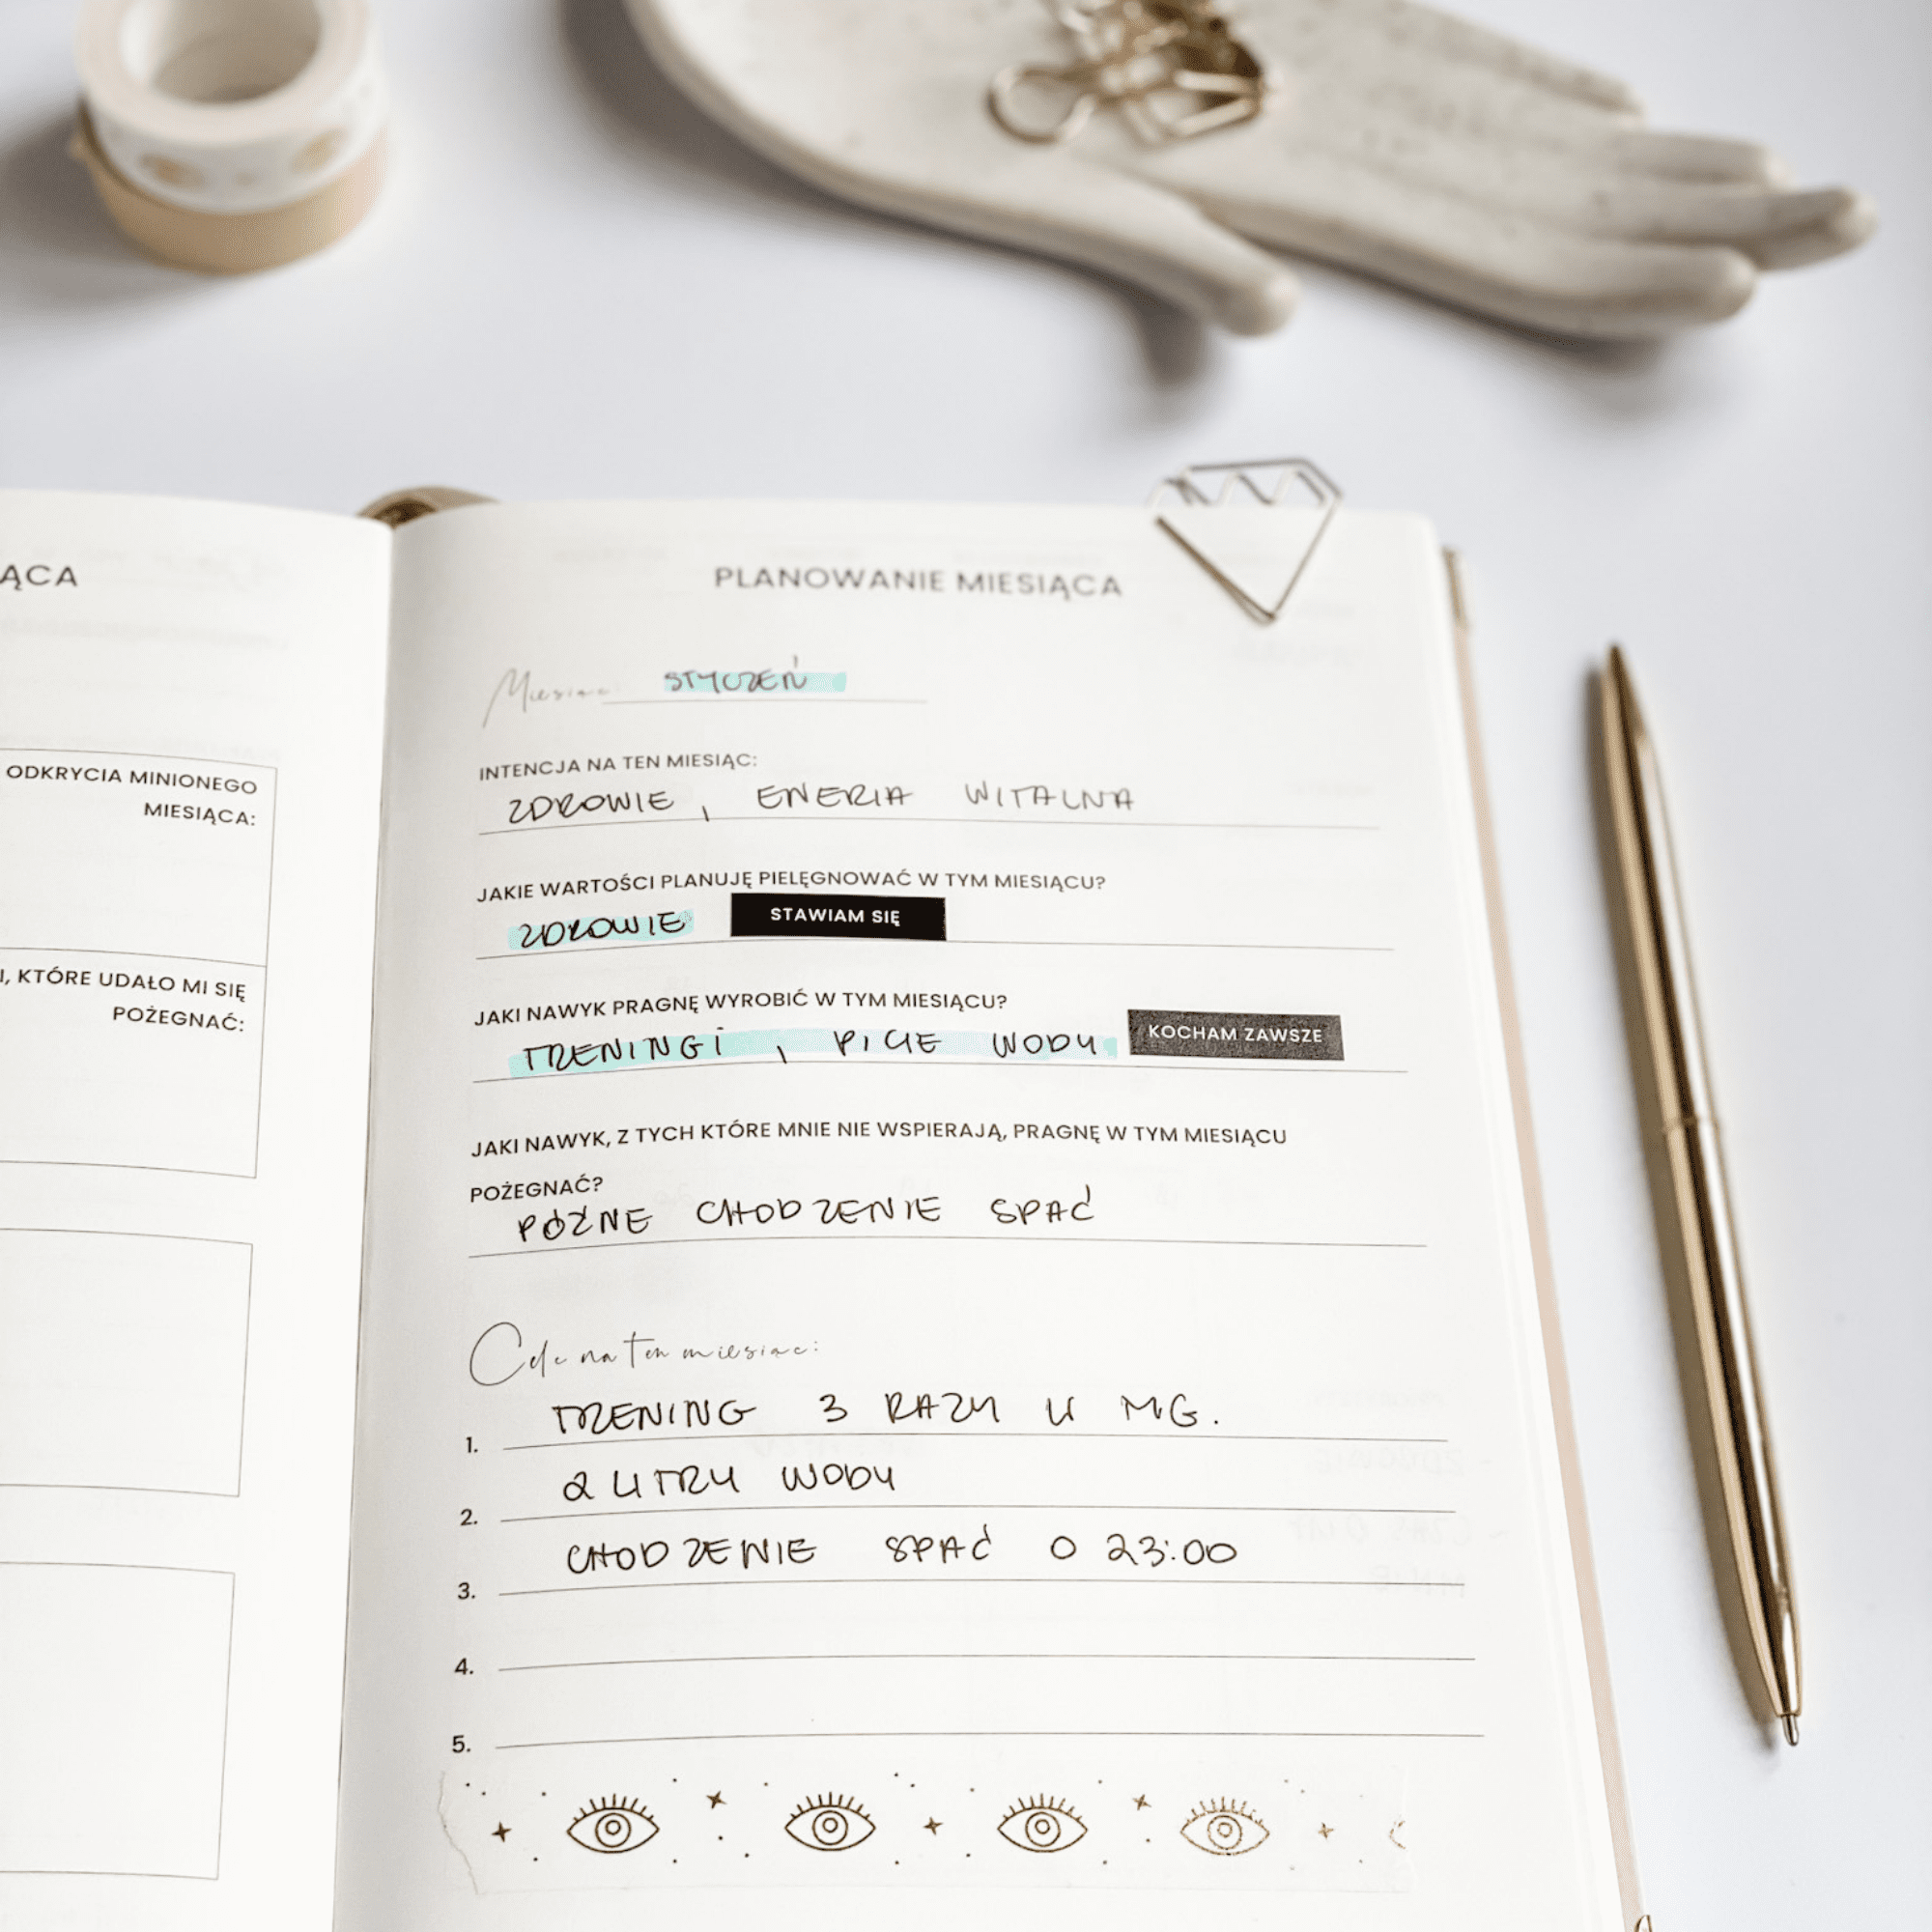 ĄCA
ODKRYCIA MINIONEGO
MIESIĄCA:
I, KTÓRE UDAŁO MI SIĘ
POŻEGNAĆ:
PLANOWANIE MIESIĄCA
Miesiąc: STYCZEŃ
INTENCJA NA TEN MIESIĄC:
ZDROWIE, ENERIA WITALNA
JAKIE WARTOŚCI PLANUJĘ PIELĘGNOWAĆ W TYM MIESIĄCU?
ZDROWIE STAWIAM SIĘ
JAKI NAWYK PRAGNĘ WYROBIĆ W TYM MIESIĄCU?
TRENINGI, PICIE WODY KOCHAM ZAWSZE
JAKI NAWYK, Z TYCH KTÓRE MNIE NIE WSPIERAJĄ, PRAGNĘ W TYM MIESIĄCU
POŻEGNAĆ?
PÓŹNE CHODZENIE SPAĆ
Cele na ten miesiąc:
1. TRENING 3 RAZY W MG.
2. 2 LITRY WODY
3. CHODZENIE SPAĆ O 23:00
4.
5.